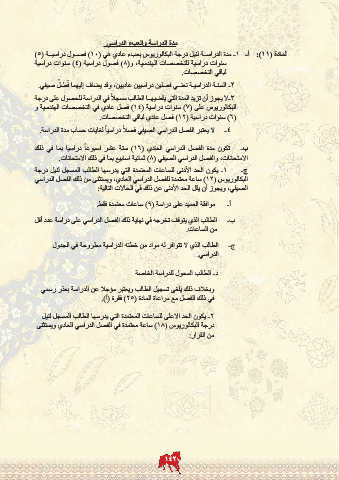 مدة الدراسة والعبء الدراسي
المادة (١١): أ- ١- مدة الدراسة لنيل درجة البكالوريوس بعبء عادي هي (١٠) فصول دراسية (٥)
سنوات دراسية للتخصصات الهندسية، و(٨) فصول دراسية (٤) سنوات دراسية
لباقي التخصصات.
٢- السنة الدراسية تعني فصلين دراسيين عاديين، وقد يضاف إليهما فصلٌ صيفي.
٣- لا يجوز أن تزيد المدة التي يقضيها الطالب مسجلاً في الدراسة للحصول على درجة
البكالوريوس على (٧) سنوات دراسية (١٤) فصل عادي في التخصصات الهندسية و
(٦) سنوات دراسية (١٢) فصل عادي لباقي التخصصات.
٤- لا يعتبر الفصل الدراسي الصيفي فصلاً دراسياً لغايات حساب مدة الدراسة.
ب- تكون مدة الفصل الدراسي العادي (١٦) ستة عشر أسبوعاً دراسياً بما في ذلك
الامتحانات، والفصل الدراسي الصيفي (٨) ثمانية أسابيع بما في ذلك الامتحانات.
ج- ١- يكون الحد الأدنى للساعات المعتمدة التي يدرسها الطالب المسجل لنيل درجة
البكالوريوس (١٢) ساعة معتمدة للفصل الدراسي العادي، ويستثنى من ذلك الفصل الدراسي
الصيفي، ويجوز أن يقل الحد الأدنى عن ذلك في الحالات التالية:
أ- موافقة العميد على دراسة (٩) ساعات معتمدة فقط.
ب- الطالب الذي يتوقف تخرجه في نهاية ذلك الفصل الدراسي على دراسة عدد أقل
من الساعات.
ج- الطالب الذي لا تتوافر له مواد من خطته الدراسية مطروحة في الجدول
الدراسي.
د- الطالب المحول للدراسة الخاصة
وبخلاف ذلك يلغى تسجيل الطالب ويعتبر مؤجلاً عن الدراسة بعذر رسمي
في ذلك الفصل مع مراعاة المادة (٢٥) فقرة (أ).
٢- يكون الحد الاعلى للساعات المعتمدة التي يدرسها الطالب المسجل لنيل
درجة البكالوريوس (١٨) ساعة معتمدة في الفصل الدراسي العادي ويستثنى
من القرار:
١٤٢